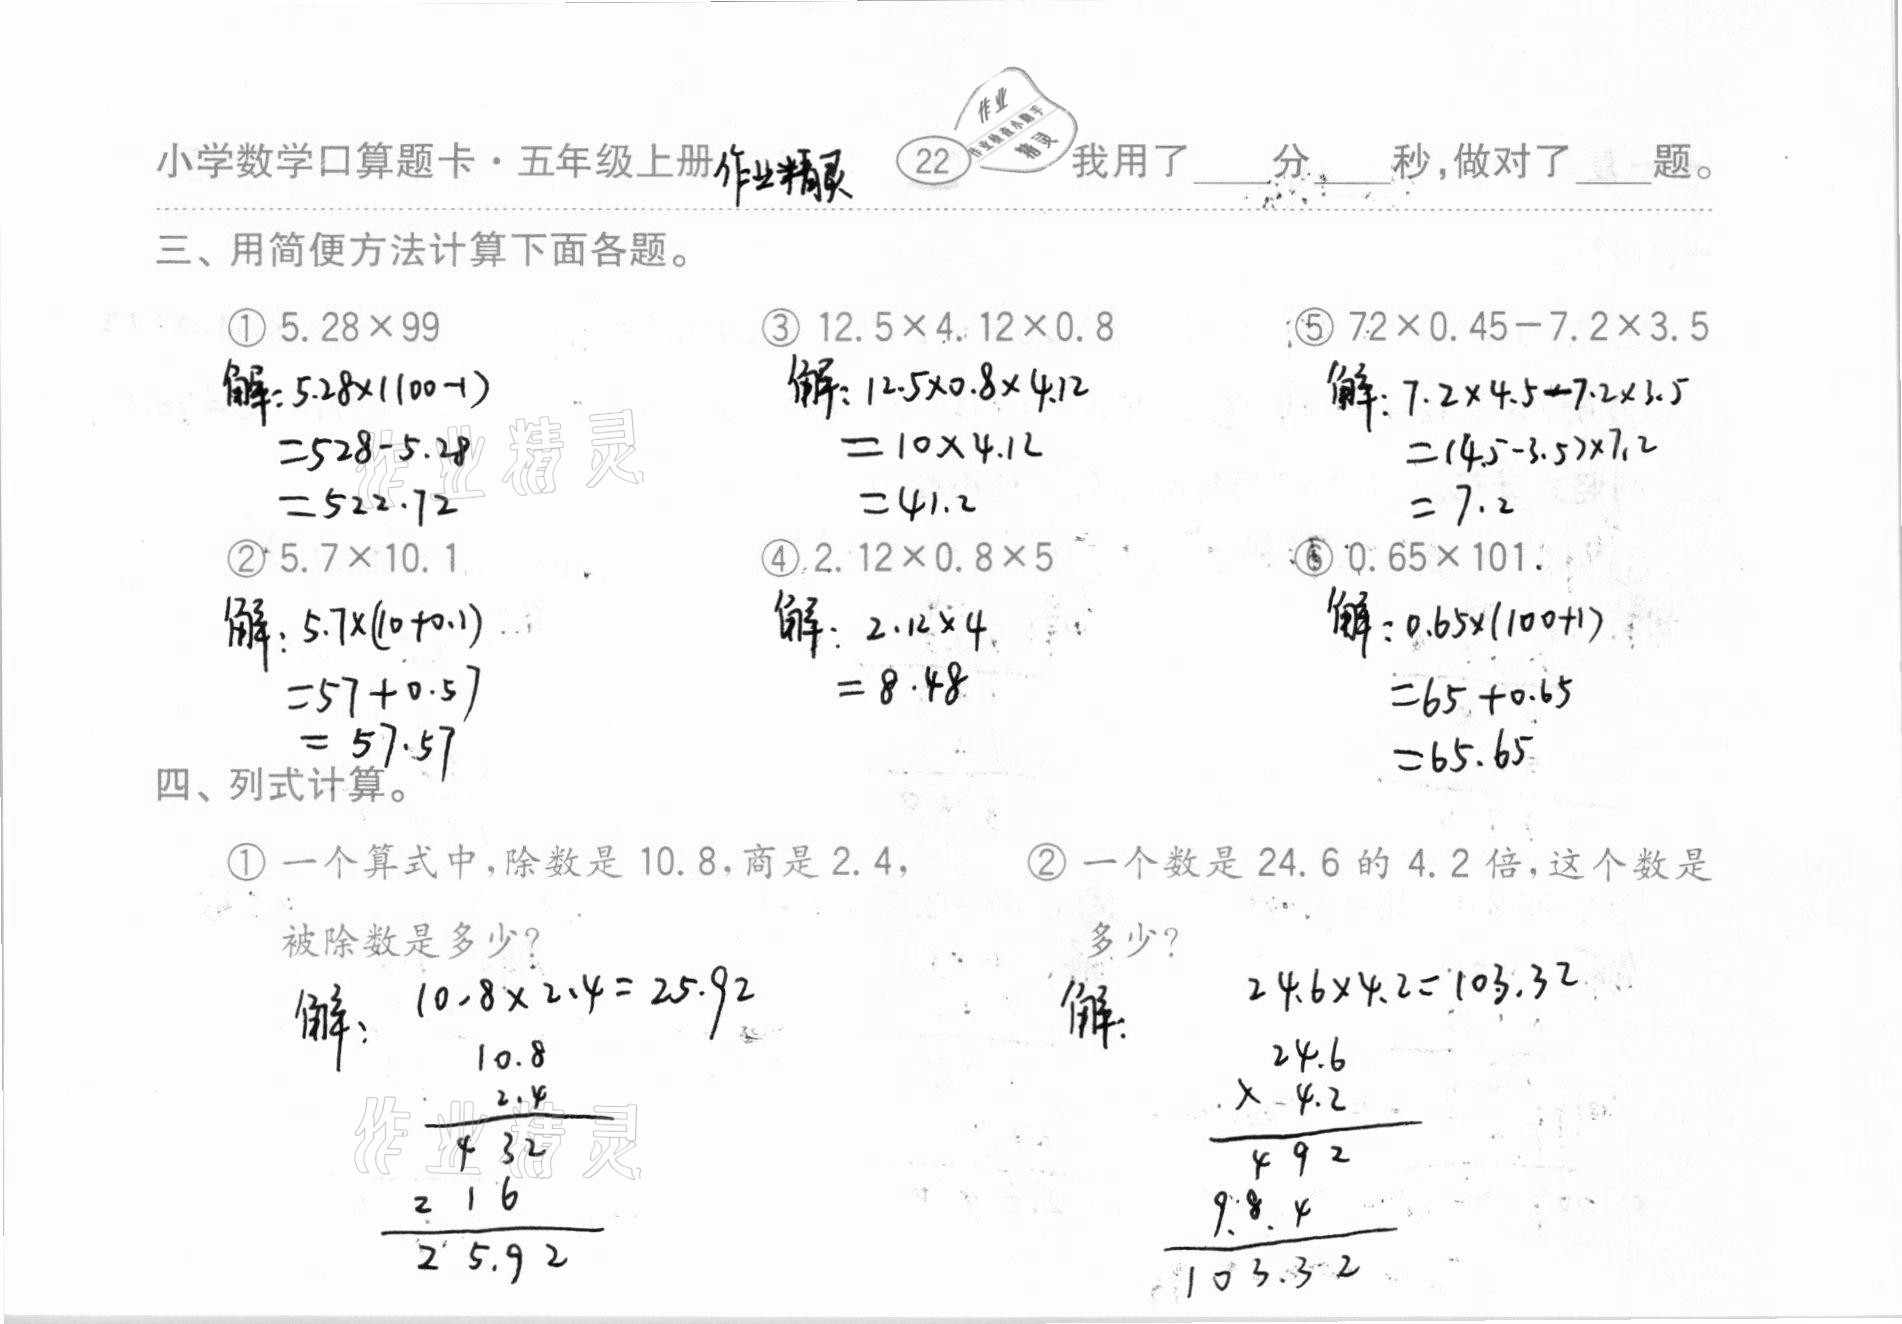 小学数学口算题卡·五年级上册 作业精灵 22 作业 作业检查小助手 精灵 我用了____分____秒,做对了____题。
三、用简便方法计算下面各题。
① 5.28×99 ③ 12.5×4.12×0.8 ⑤ 72×0.45-7.2×3.5
解:5.28×(100-1) 解:12.5×0.8×4.12 解:7.2×4.5-7.2×3.5
=528-5.28 =10×4.12 =(4.5-3.5)×7.2
=522.72 =41.2 =7.2
② 5.7×10.1 ④ 2.12×0.8×5 ⑥ 0.65×101.
解:5.7×(10+0.1) 解:2.12×4 解:0.65×(100+1)
=57+0.57 =8.48 =65+0.65
=57.57 =65.65
四、列式计算。
① 一个算式中,除数是 10.8,商是 2.4, ② 一个数是 24.6 的 4.2 倍,这个数是
被除数是多少? 多少?
解: 10.8×2.4=25.92 解: 24.6×4.2=103.32
10.8 24.6
2.4 × 4.2
4 3 2 4 9 2
2 1 6 9.8.4
2 5.9 2 1 0 3.3 2
作业精灵
作业精灵